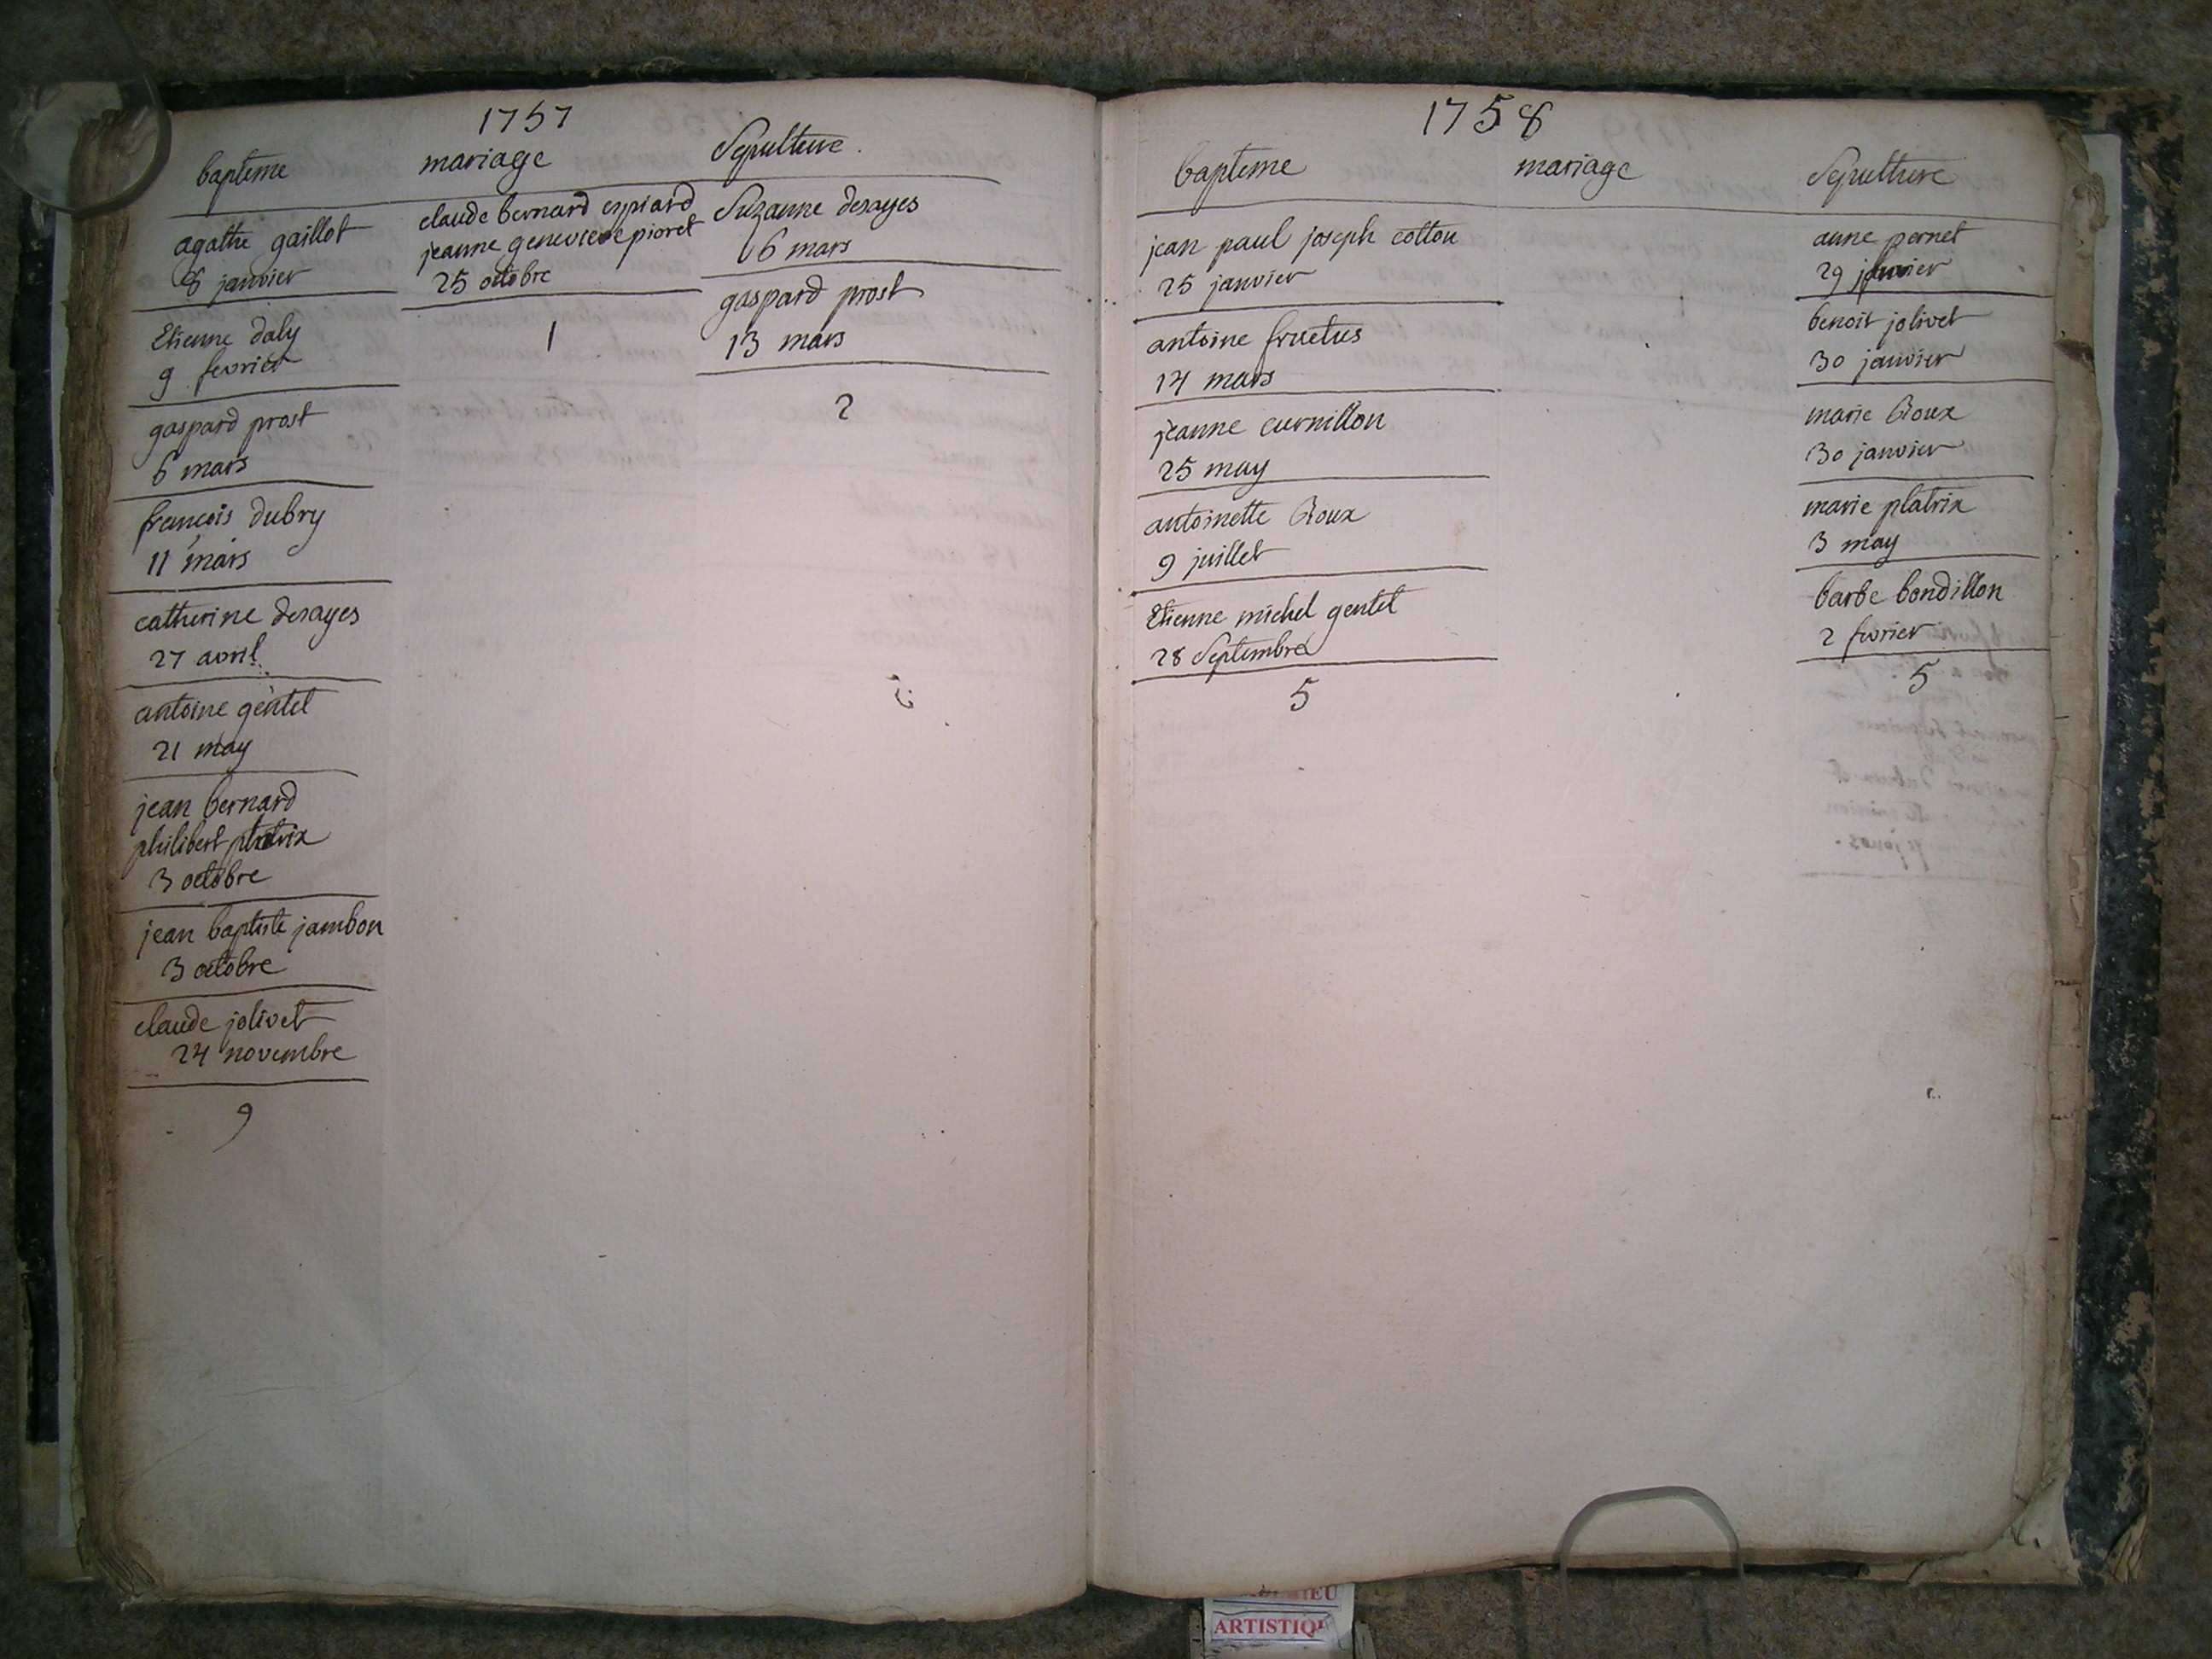 1757
bapteme
mariage
Sepulture.
agathe gaillot
8 janvier
Etienne daly
9 fevrier
gaspard prost
6 mars
francois dubry
11 mars
catherine desayes
27 avril
antoine gentel
21 may
jean bernard
philibert platrix
3 octobre
jean baptiste jambon
3 octobre
claude jolivet
24 novembre
9
claude bernard espiard
jeanne genevieve pioret
25 octobre
1
Suzanne desayes
6 mars
gaspard prost
13 mars
2
1758
bapteme
mariage
Sepulture
jean paul joseph cottou
25 janvier
antoine fructus
14 mars
jeanne curnillon
25 may
antoinette Roux
9 juillet
Etienne michel gentel
28 Septembre
5
anne pernet
29 janvier
benoit jolivet
30 janvier
marie Roux
30 janvier
marie platrix
3 may
barbe bondillon
2 fevrier
5
ARTISTIQU